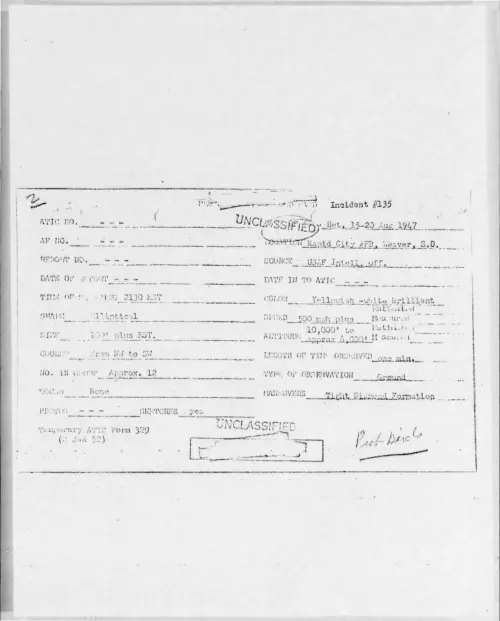 2
Incident #135
UNCLASSIFIED
ATIC NO. - - -
Bet. 15-20 Aug 1947
AF NO. - - -
LOCATION Rapid City AFB, Weaver, S.D.
REPORT NO. - - -
SOURCE USAF Intell. off.
DATE OF REPORT - - -
DATE IN TO ATIC - - -
TIME OF 2130 MST
COLOR Yellowish -white brilliant
SHAPE Elliptical
SPEED 500 mph plus Estimated Measured
SIZE plus EST.
ALTITUDE 10,000' to approx
COURSE From NW to SW
LENGTH OF TIME OBSERVED one min.
NO. IN GROUP Approx. 12
TYPE OF OBSERVATION Ground
SOUND None
MANEUVERS Tight Diamond Formation
PHOTO - - - SKETCHES yes
Temporary ATIC Form 329
(2 Jan 52)
UNCLASSIFIED
Prob Birds